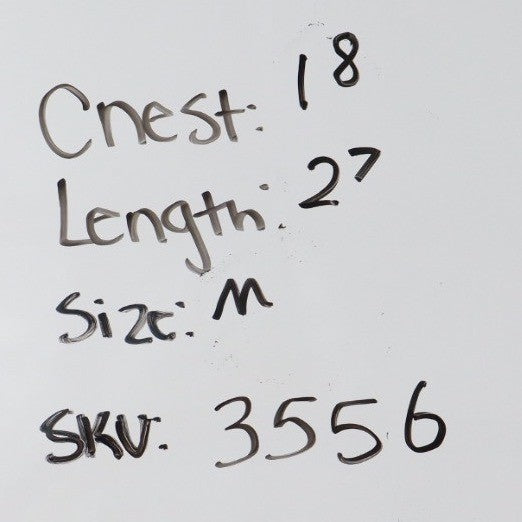 Chest: 18
Length: 27
Size: M
SKU: 3556